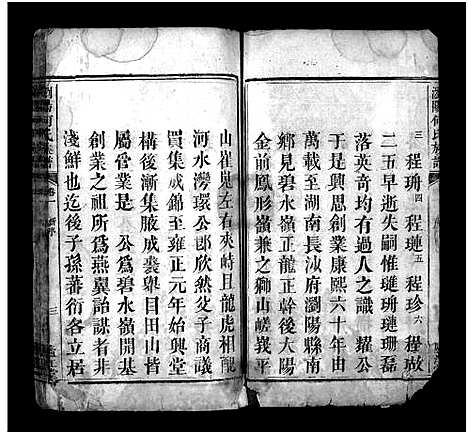 瀏陽何氏族譜
三程珊四程璉五程珍六程啟
二五早逝失嗣惟璡珊璉珊磊
落英奇均有過人之識 耀公
于是興思創業康熙六十年由
大路至湖南長沙府瀏陽縣南
鄉見碧水嶺正龍正幹後大陽
金前鳳形嶺兼之獅山嵯峩平
山崔晃左右夾峙且龍虎相配
河水灣環 公郎欣然父子商議
買集成錦至雍正元年始興堂
構後漸集腋成裘舉目田山皆
屬嘗業是 公為碧水嶺開基
創業之祖所為燕翼詒謀者非
淺鮮也迄後子孫蕃衍各立居
卷一
三